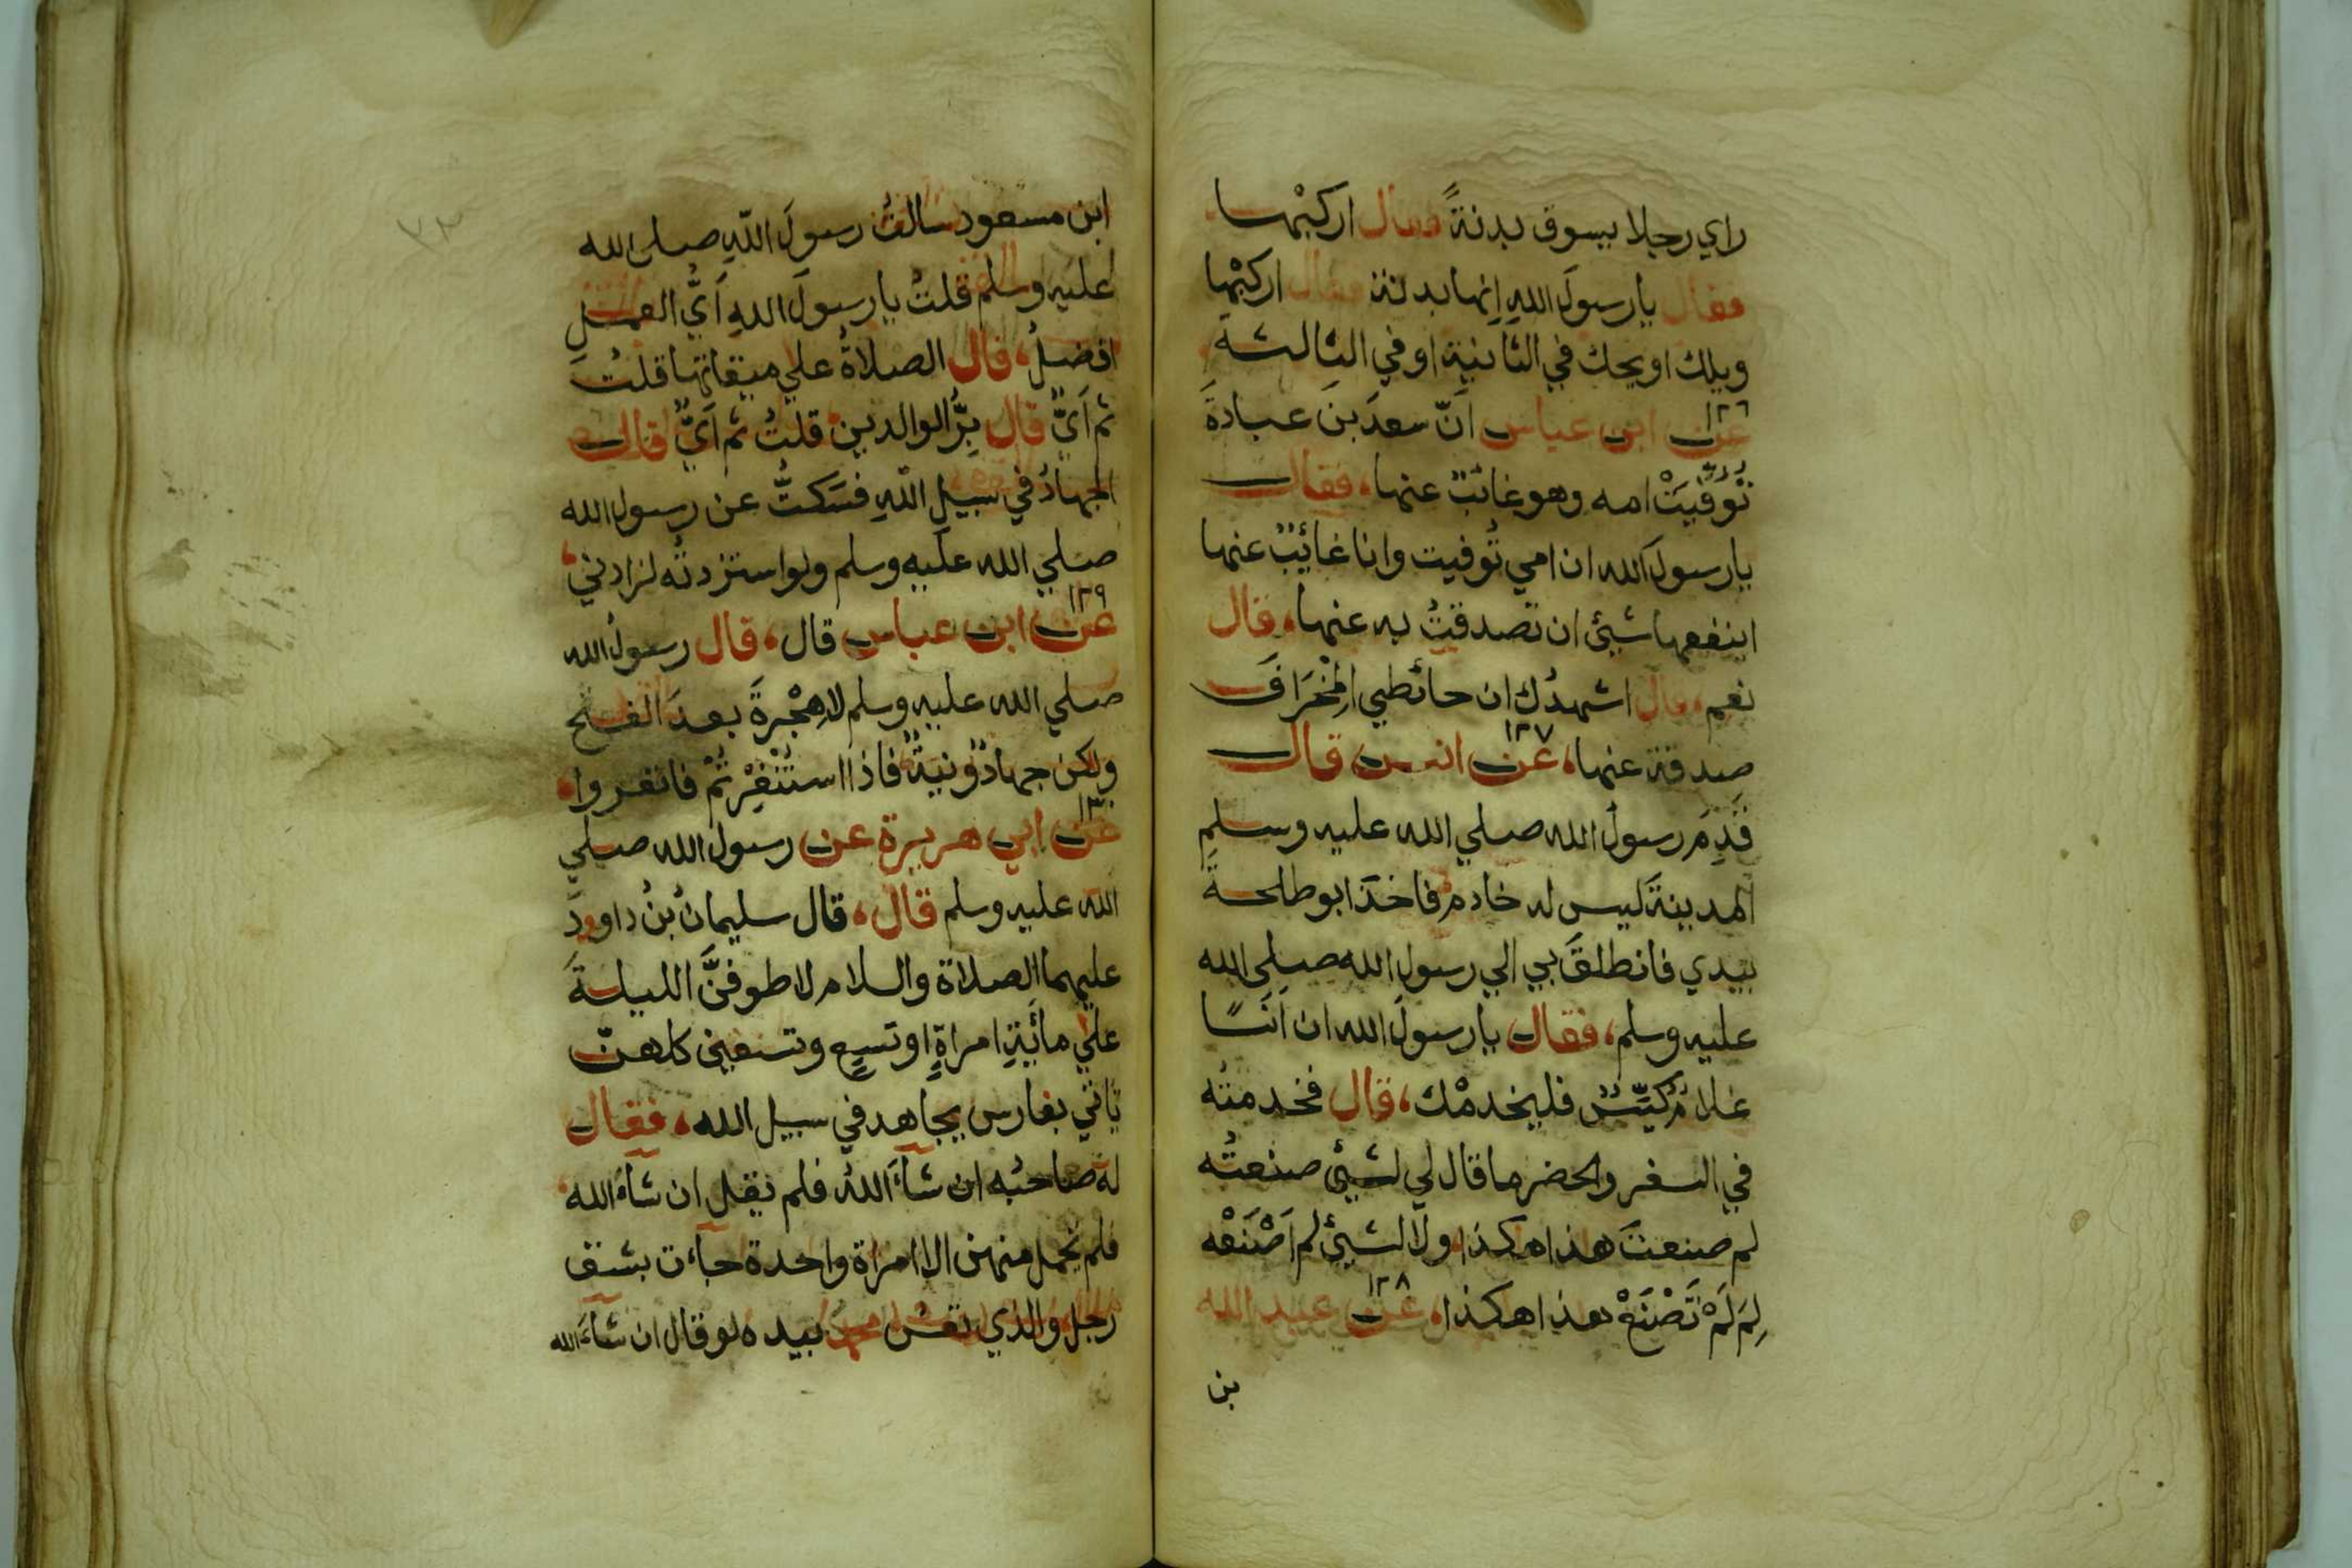 راي رجلا يسوق بدنةً فقال اركبْها
فقال يا رسولَ اللهِ إنها بدنة فقال اركبْها
ويلك او يحك في الثانية او في الثالثة
١٢٦
عن ابن عباس اَنّ سعدَ بنَ عبادةَ
تُوُفِّيَتْ امه وهو غائبٌ عنها، فقال
يا رسولَ الله ان امي تُوفيت وانا غائبٌ عنها
اينفعها شيئ ان تصدقتُ به عنها، قال
نعم، قال اشهدُك ان حائطي المِخْرَافَ
صدقة عنها، ١٢٧ عن انس قال
قَدِمَ رسولُ الله صلي الله عليه وسلم
المدينةَ ليس له خادم فاخذَ ابو طلحةَ
بيدي فانطلقَ بي الي رسول الله صلي الله
عليه وسلم، فقال يا رسولَ الله ان اَنَسًا
غلامٌ كيّسٌ فليخدمْك، قال فخدمتُه
في السفر والحضر ما قال لي لشيئ صنعتُه
لم صنعتَ هذا هكذا ولا لشيئ لم اَصْنَعْه
لِمَ لَمْ تَصْنَعْ هذا هكذا، ١٢٨ عن عبد الله
بن
٧٣
ابن مسعود سالتُ رسولَ اللّهِ صلى الله
عليه وسلم قلتُ يا رسولَ اللهِ اَيُّ العملِ
افضلُ، قال الصلاةُ علي ميقاتها قلتُ
ثم اَيٌّ قال بِرُّ الوالدين قلتُ ثم اَيٌّ قال
الجهادُ في سبيلِ اللّهِ فسَكتُّ عن رسول الله
صلي الله عليه وسلم ولو استزدتُه لزادني،
١٢٩
عن ابن عباس قال، قال رسولُ الله
صلي الله عليه وسلم لا هِجْرةَ بعدَ الفتح
ولكن جهادٌ ونيةٌ فاذا استُنْفِرْتُمْ فانفروا
١٣٠
عن ابي هريرة عن رسول الله صلي
الله عليه وسلم قال، قال سليمانُ بنُ داوودَ
عليهما الصلاة والسلام لاطوفنَّ الليلةَ
علي مائةِ امراةٍ او تسعٍ وتسعين كلهنّ
ياتي بفارس يجاهد في سبيل الله، فقال
له صاحبُه ان شاءَ اللهُ فلم يقل ان شاءَ الله
فلم تحمل منهن الا امراة واحدة جاءت بشق
رجل والذي نفسُ محمدٍ بيده لو قال ان شاءَ الله